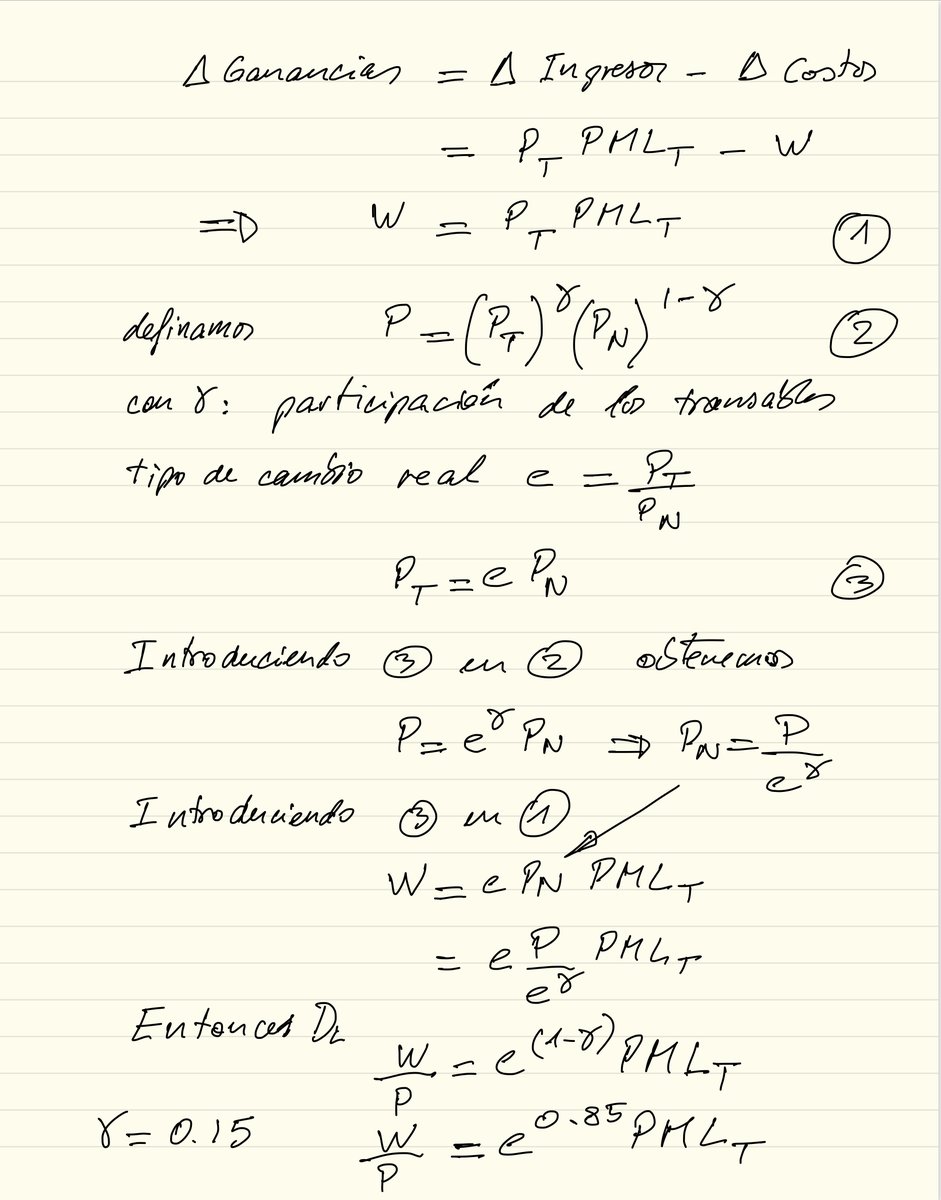 Δ Ganancias = Δ Ingresos - Δ Costos
= P_T PML_T - W
⇒ W = P_T PML_T ①
definamos P = (P_T)^γ (P_N)^{1-γ} ②
con γ: participación de los transables
tipo de cambio real e = P_T / P_N
P_T = e P_N ③
Introduciendo ③ en ② obtenemos
P = e^γ P_N ⇒ P_N = P / e^γ
Introduciendo ③ en ①
W = e P_N PML_T
= e P / e^γ PML_T
Entonces D_L
W / P = e^{(1-γ)} PML_T
γ = 0.15 W / P = e^{0.85} PML_T